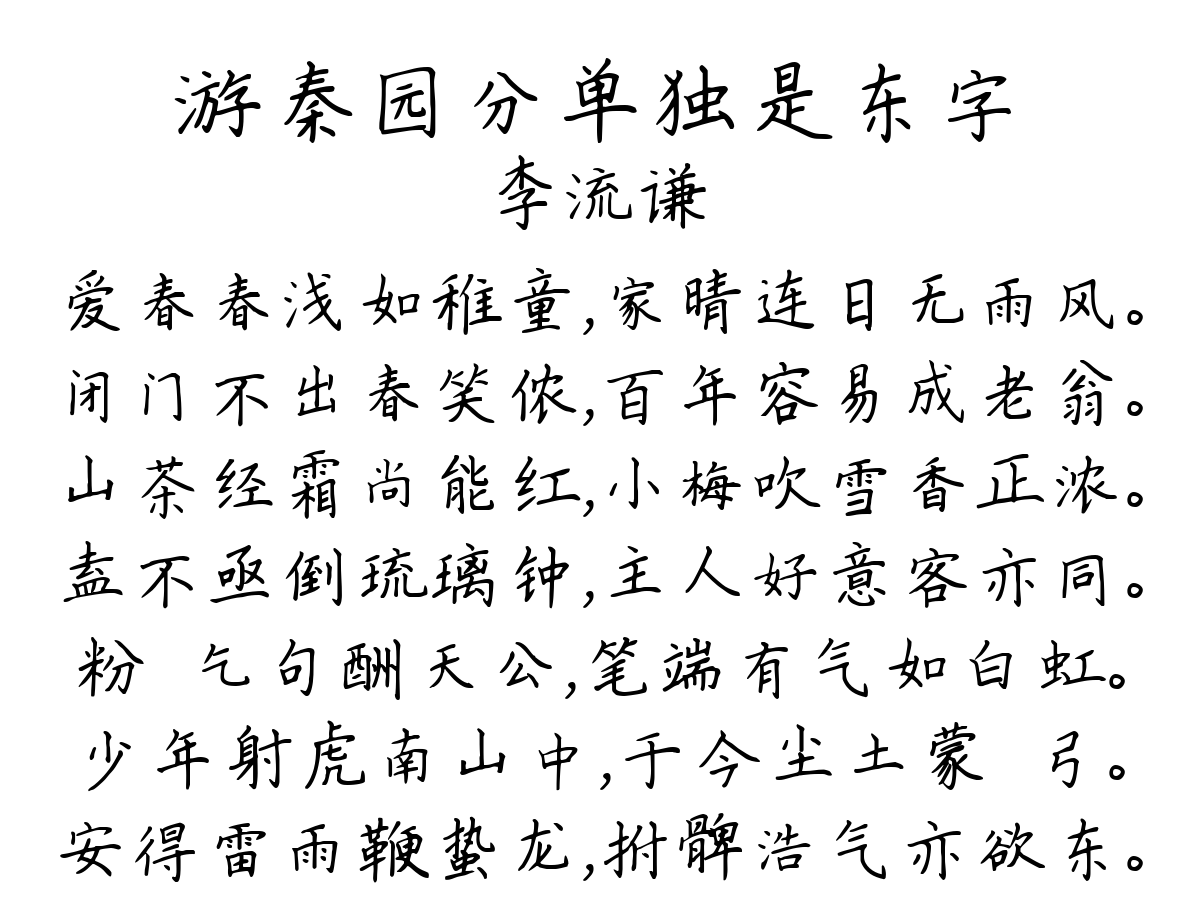 游秦园分单独是东字
李流谦
爱春春浅如稚童,家晴连日无雨风。
闭门不出春笑侬,百年容易成老翁。
山茶经霜尚能红,小梅吹雪香正浓。
盍不亟倒琉璃钟,主人好意客亦同。
粉 乞句酬天公,笔端有气如白虹。
少年射虎南山中,于今尘土蒙 弓。
安得雷雨鞭蛰龙,拊髀浩气亦欲东。